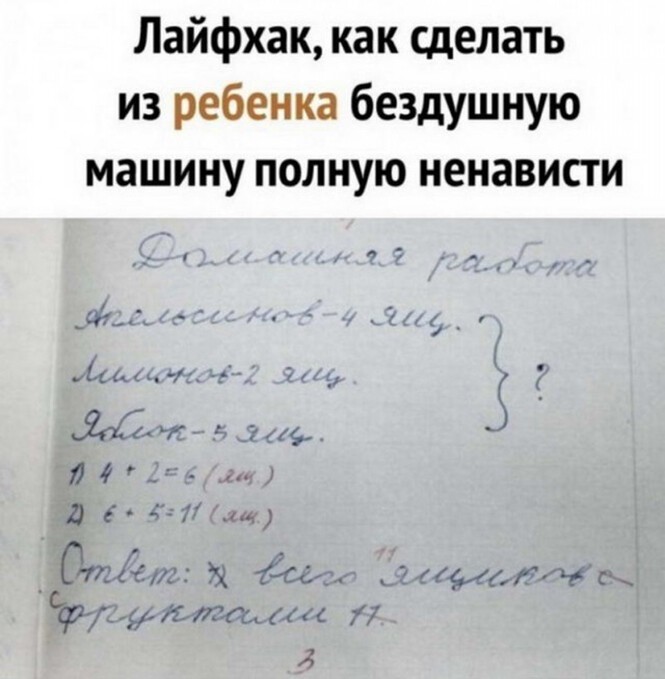 Лайфхак, как сделать
из ребенка бездушную
машину полную ненависти
Домашняя работа
Апельсинов-4 ящ.
Лимонов-2 ящ.
Яблок-5 ящ.
?
1) 4 + 2=6 (ящ.)
2) 6 + 5=11 (ящ.)
Ответ: всего 11 ящиков с
с фруктами 11.
3